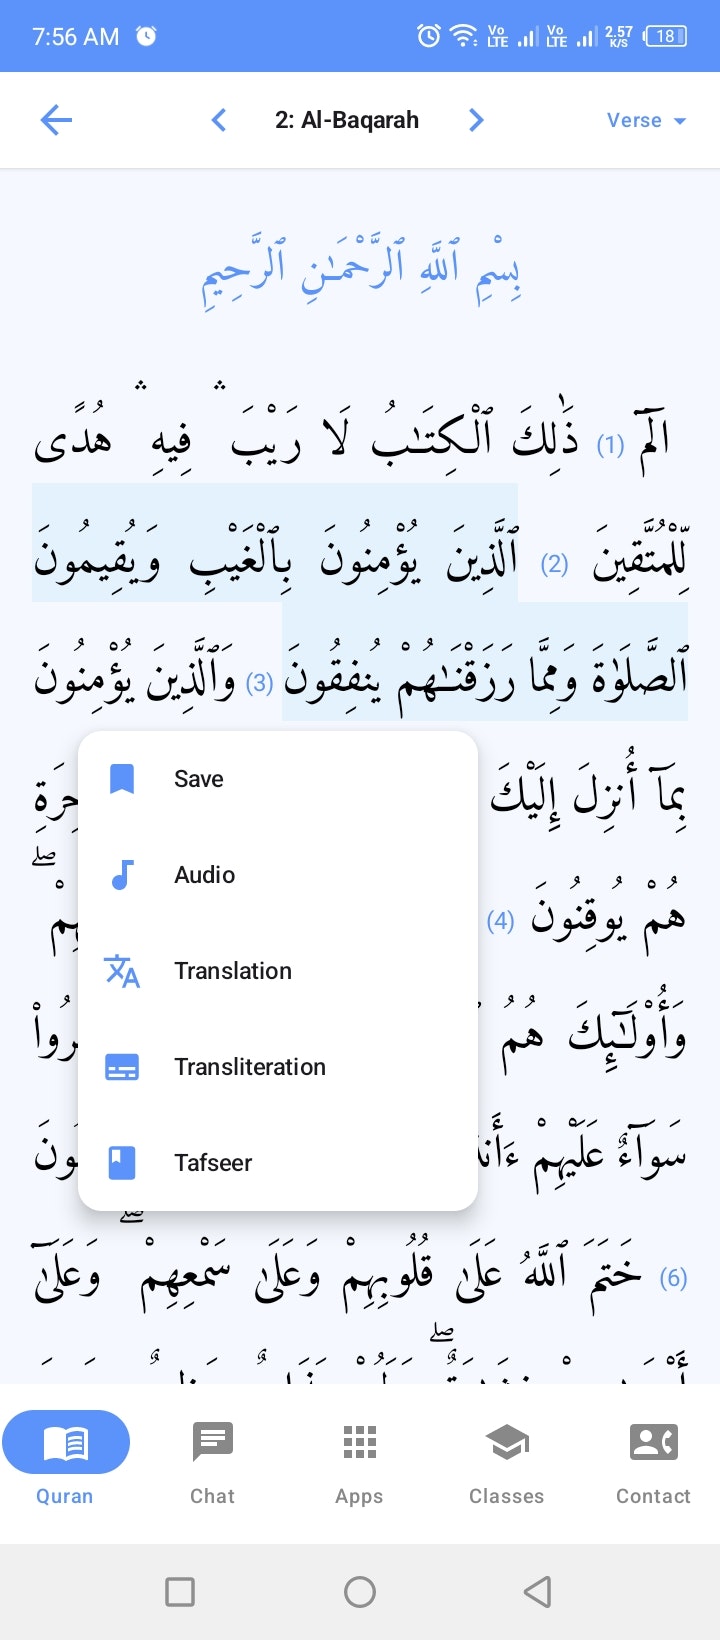 7:56 AM Vo LTE Vo LTE 2.57 K/S 18
2: Al-Baqarah Verse
بِسْمِ ٱللَّهِ ٱلرَّحْمَـٰنِ ٱلرَّحِيمِ
الٓمٓ (1) ذَٰلِكَ ٱلْكِتَـٰبُ لَا رَيْبَ ۛ فِيهِ ۛ هُدًى
لِّلْمُتَّقِينَ (2) ٱلَّذِينَ يُؤْمِنُونَ بِٱلْغَيْبِ وَيُقِيمُونَ
ٱلصَّلَوٰةَ وَمِمَّا رَزَقْنَـٰهُمْ يُنفِقُونَ (3) وَٱلَّذِينَ يُؤْمِنُونَ
بِمَآ أُنزِلَ إِلَيْكَ
هُمْ يُوقِنُونَ (4)
وَأُو۟لَـٰٓئِكَ هُمُ
سَوَآءٌ عَلَيْهِمْ
(6) خَتَمَ ٱللَّهُ عَلَىٰ قُلُوبِهِمْ وَعَلَىٰ سَمْعِهِمْ ۖ وَعَلَىٰٓ
Save
Audio
Translation
Transliteration
Tafseer
Quran Chat Apps Classes Contact